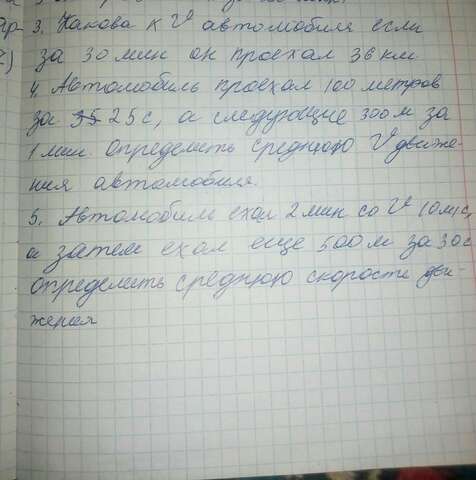 3. Какова к V автомобиля если
за 30 мин он проехал 36 км
4. Автомобиль проехал 100 метров
за 25 с, а следующие 300 м за
1 мин. определить среднюю V движе-
ния автомобиля.
5. Автомобиль ехал 2 мин со V 10 м/с,
а затем ехал еще 500 м за 30 с
определить среднюю скорость дви
жения